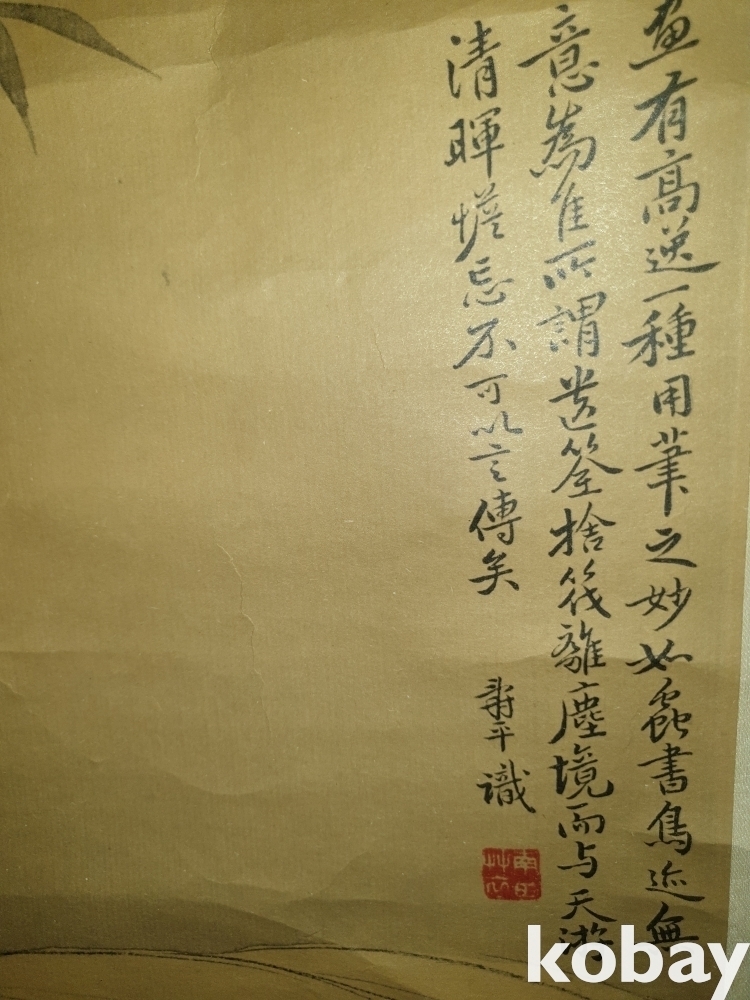 畫有高逸一種用筆之妙如蟲書鳥迹無
意為佳所謂遺筌捨筏離塵境而与天游
清暉憺忘不可以言傳矣
壽平識
kobay